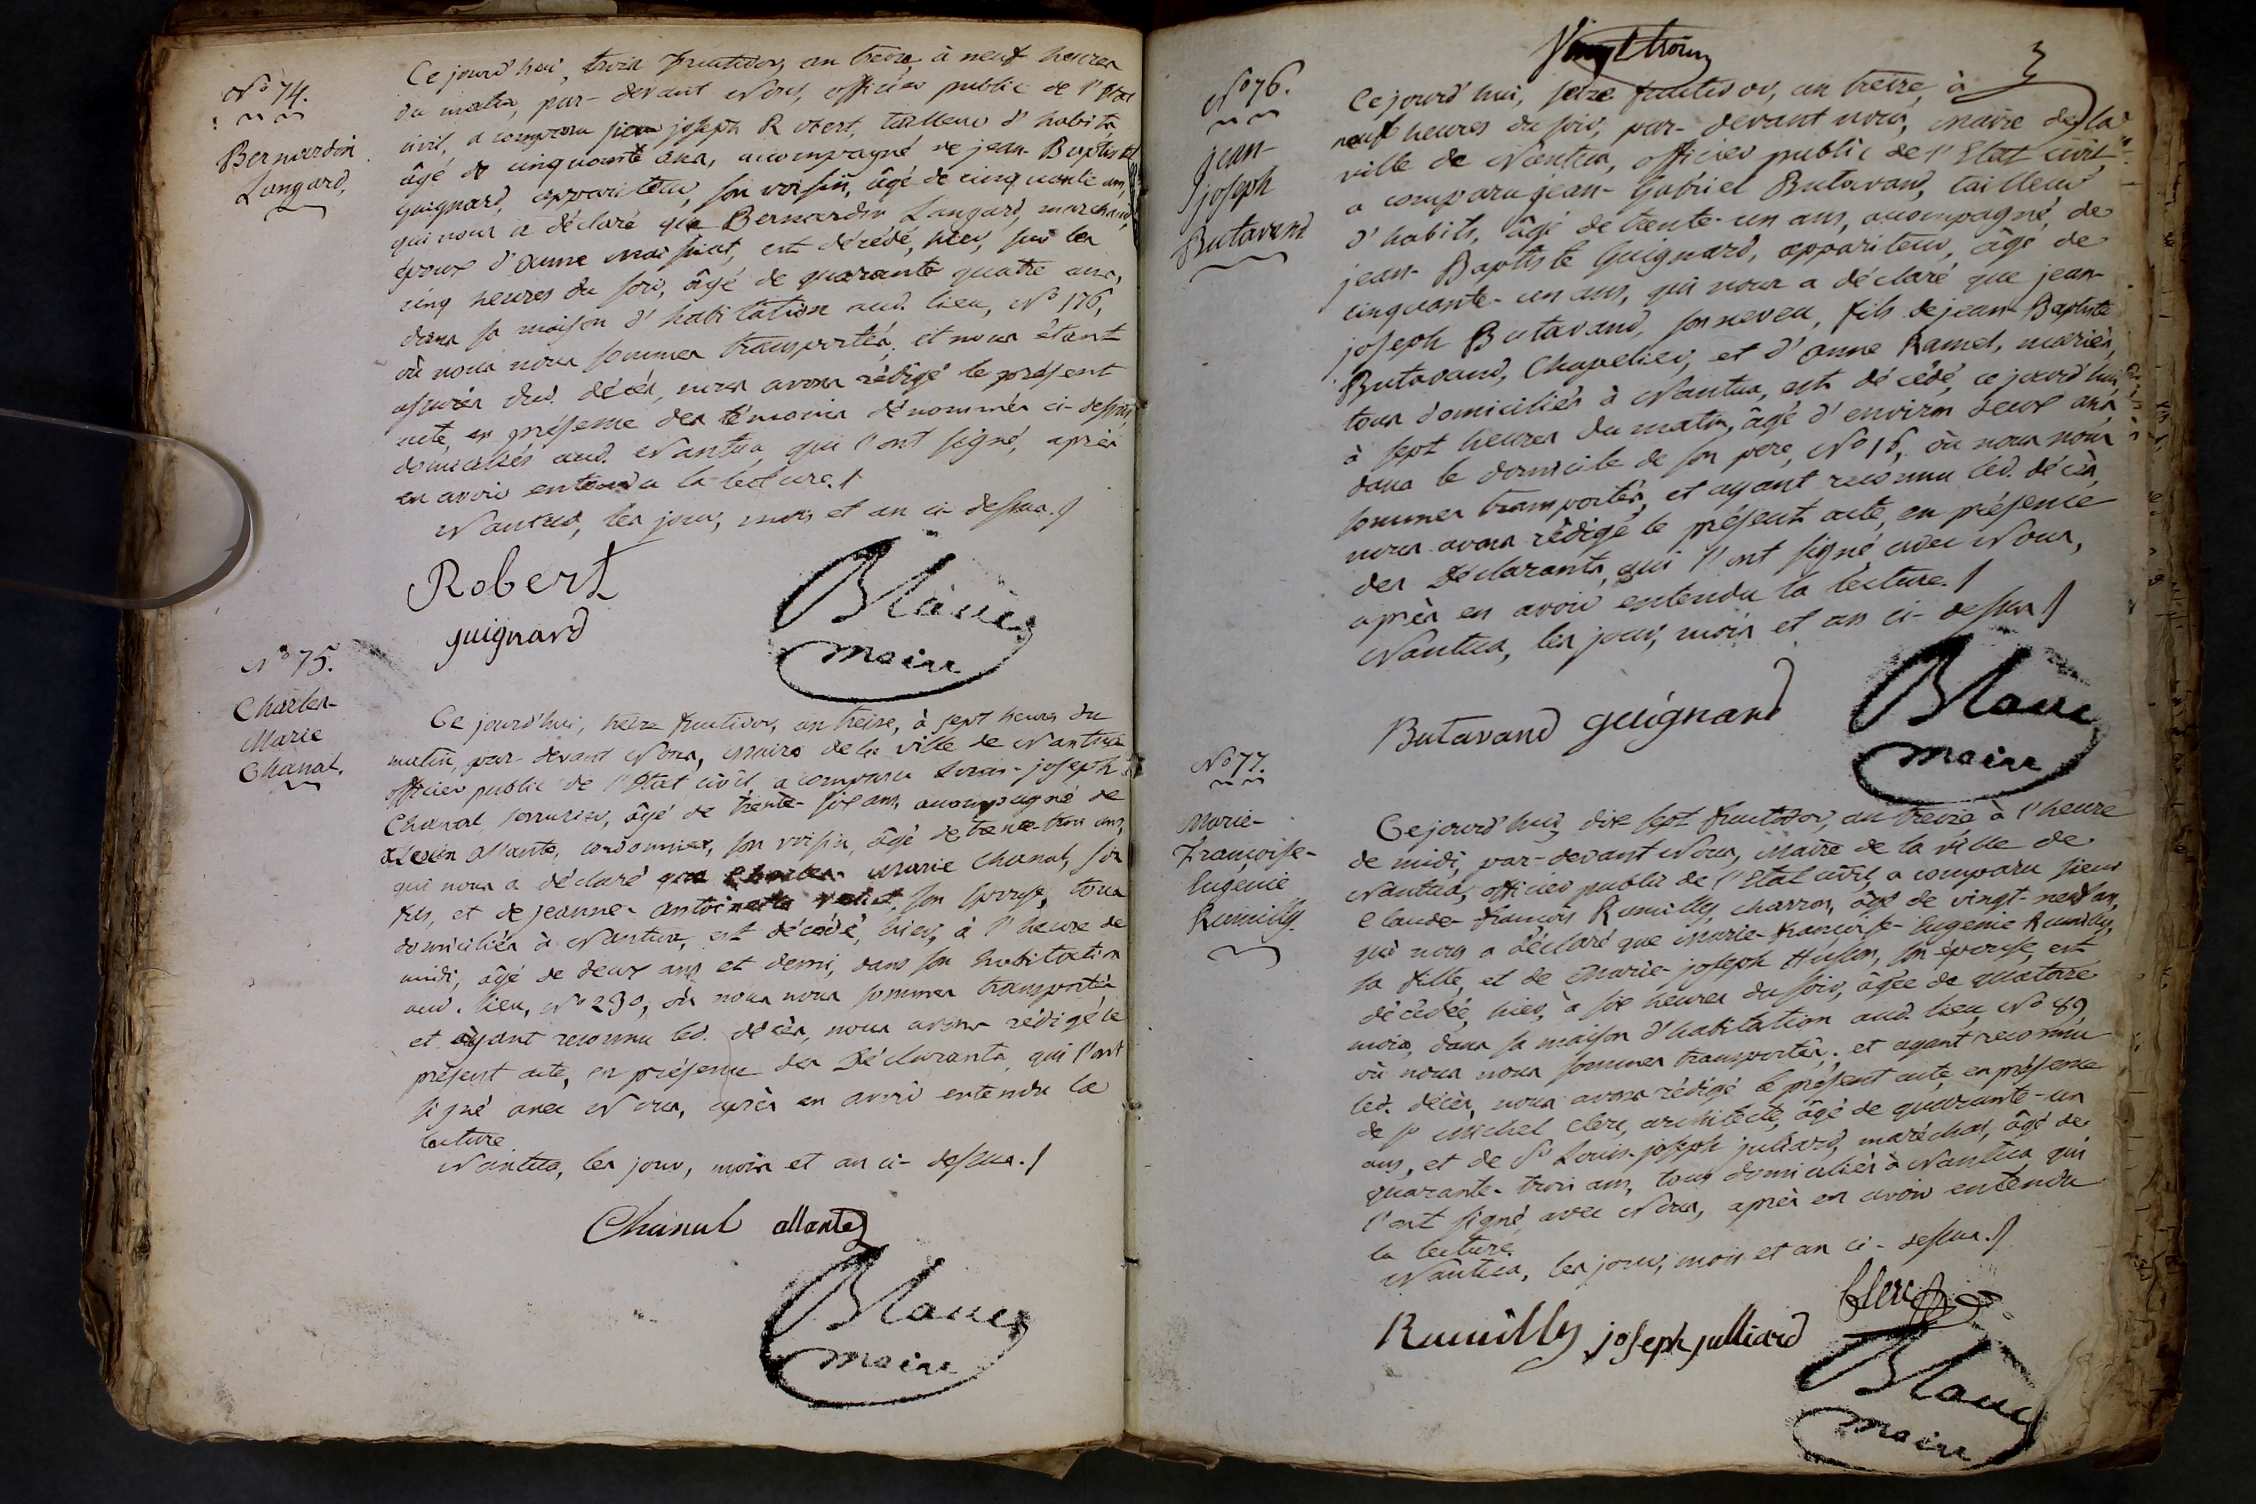 N° 74.
Bernardin
Langard,
Ce jourd'hui, trois fructidor, an treize, à neuf heures
du matin, par-devant Nous, officier public de l'Etat
civil, a comparu sieur joseph Robert, tailleur d'habits,
âgé de cinquante ans, accompagné de jean-Baptiste
Guignard, appariteur, son voisin, âgé de cinquante ans,
qui nous a déclaré que Bernardin Langard, marchand,
époux d'anne maissiat, est décédé, hier, sur les
cinq heures du soir, âgé de quarante quatre ans,
dans sa maison d'habitation aud. lieu, N° 176,
où nous nous sommes transportés, et nous étant
assurés dud. décès, nous avons rédigé le présent
acte, en présence des témoins dénommés ci-dessus,
domiciliés aud. Nantua, qui l'ont signé, après
en avoir entendu la lecture./
Nantua, les jour, mois et an ci-dessus./
Robert
guignard
Blanc
maire
N° 75.
Charles-
Marie
Chanal.
Ce jourd'hui, treize fructidor, an treize, à sept heures du
matin, par-devant Nous, Maire de la ville de Nantua
officier public de l'Etat civil, a comparu Louis-joseph
Chanal, serrurier, âgé de trente-six ans, accompagné de
Allante, cordonnier, son voisin, âgé de trente-trois ans,
qui nous a déclaré que Charles-Marie Chanal, son
fils, et de jeanne-antoinette son épouse, tous
domiciliés à Nantua, est décédé, hier, à l'heure de
midi, âgé de deux ans et demi, dans son habitation
aud. lieu, N° 230, où nous nous sommes transportés
et ayant reconnu led. décès, nous avons rédigé le
présent acte, en présence des Déclarants, qui l'ont
signé avec Nous, après en avoir entendu la
lecture
Nantua, les jour, mois et an ci-dessus./
Chanal allante
Blanc
maire
Vingt trois
3
N° 76.
jean-
joseph
Butavand
Ce jourd'hui, seize fructidor, an treize, à
neuf heures du soir, par-devant nous, Maire de la
ville de Nantua, officier public de l'Etat civil,
a comparu jean-Gabriel Butavand, tailleur
d'habits, âgé de trente-un ans, accompagné, de
jean-Baptiste Guignard, appariteur, âgé de
cinquante-un ans, qui nous a déclaré que jean-
joseph Butavand, son neveu, fils de jean-Baptiste
Butavand, Chapelier, et d'anne Ramel, mariés,
tous domiciliés à Nantua, est décédé, ce jourd'hui,
à sept heures du matin, âgé d'environ deux ans,
dans le domicile de son pere, N° 16, où nous nous
sommes transportés, et ayant reconnu led. décès,
nous avons rédigé le présent acte, en présence
des Déclarants, qui l'ont signé avec Nous,
après en avoir entendu la lecture./
Nantua, les jour, mois et an ci-dessus./
Butavand guignard
Blanc
maire
N° 77.
Marie-
Françoise-
Eugenie
Rumilly.
Ce jourd'hui, dix sept fructidor, an treize à l'heure
de midi, par-devant Nous, Maire de la ville de
Nantua, officier public de l'Etat civil, a comparu sieur
Claude-françois Rumilly, charron, âgé de vingt-neuf ans,
qui nous a déclaré que Marie-françoise-Eugenie Rumilly,
sa fille, et de Marie-joseph Husson, son épouse, est
décédée, hier, à six heures du soir, âgée de quatorze
mois, dans sa maison d'habitation aud. lieu, N° 89,
où nous nous sommes transportés; et ayant reconnu
led. décès, nous avons rédigé le présent acte, en présence
de Sr Michel Clerc, architecte, âgé de quarante-un
ans, et de Sr Louis-joseph juliard, maréchal, âgé de
quarante-trois ans, tous domiciliés à Nantua qui
l'ont signé, avec Nous, après en avoir entendu
la lecture.
Nantua, les jour, mois et an ci-dessus./
Clerc
Rumilly joseph julliard
Blanc
maire